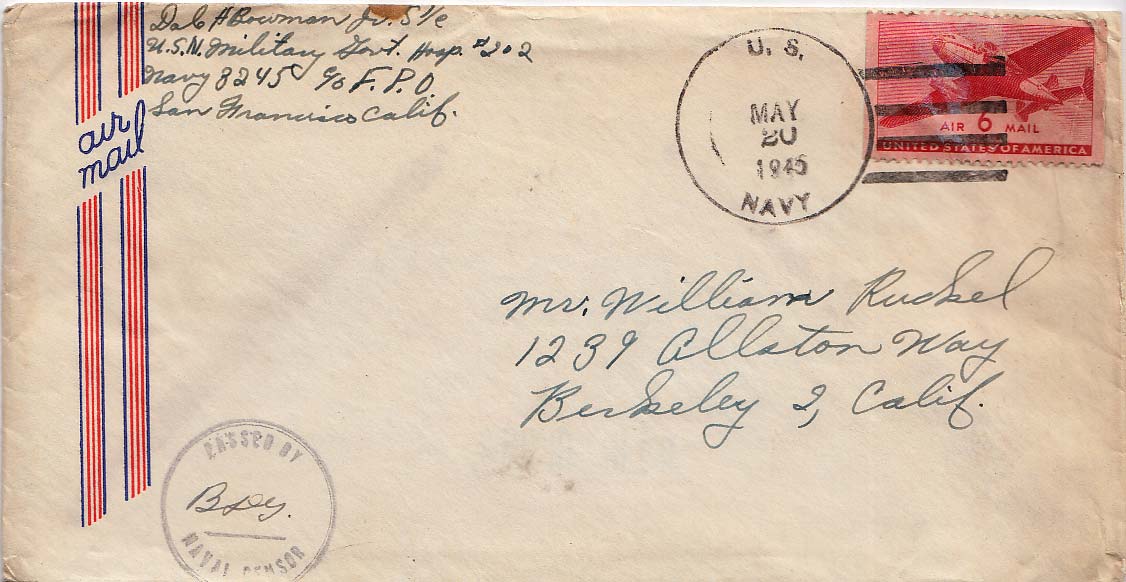 Dale H Bowman Jr. S 1/c
U.S.N. Military Govt. Hosp. #202
Navy 3245 c/o F.P.O.
San Francisco Calif.
air
mail
U. S.
MAY
20
1945
NAVY
AIR 6 MAIL
UNITED STATES OF AMERICA
Mr. William Ruckel
1239 Allston Way
Berkeley 2, Calif.
PASSED BY
NAVAL CENSOR